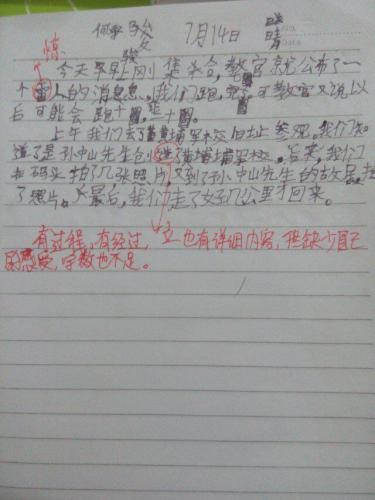 7月14日 晴
惊
今天早上刚集合,教官就公布了一
个雷人的消息。我们跑完可教官又说以
后可能会跑十圈,是十圈。
上午我们去了黄埔军校旧址参观。我们知
道了是孙中山先生创建了黄埔军校。答案,我们
在码头拍了几张照片,又到了孙中山先生的故居,拍
了照片。最后,我们走了好几公里才回来。
立
有过程,有经过,也有详细内容,但缺少自己
的感受,字数也不足。